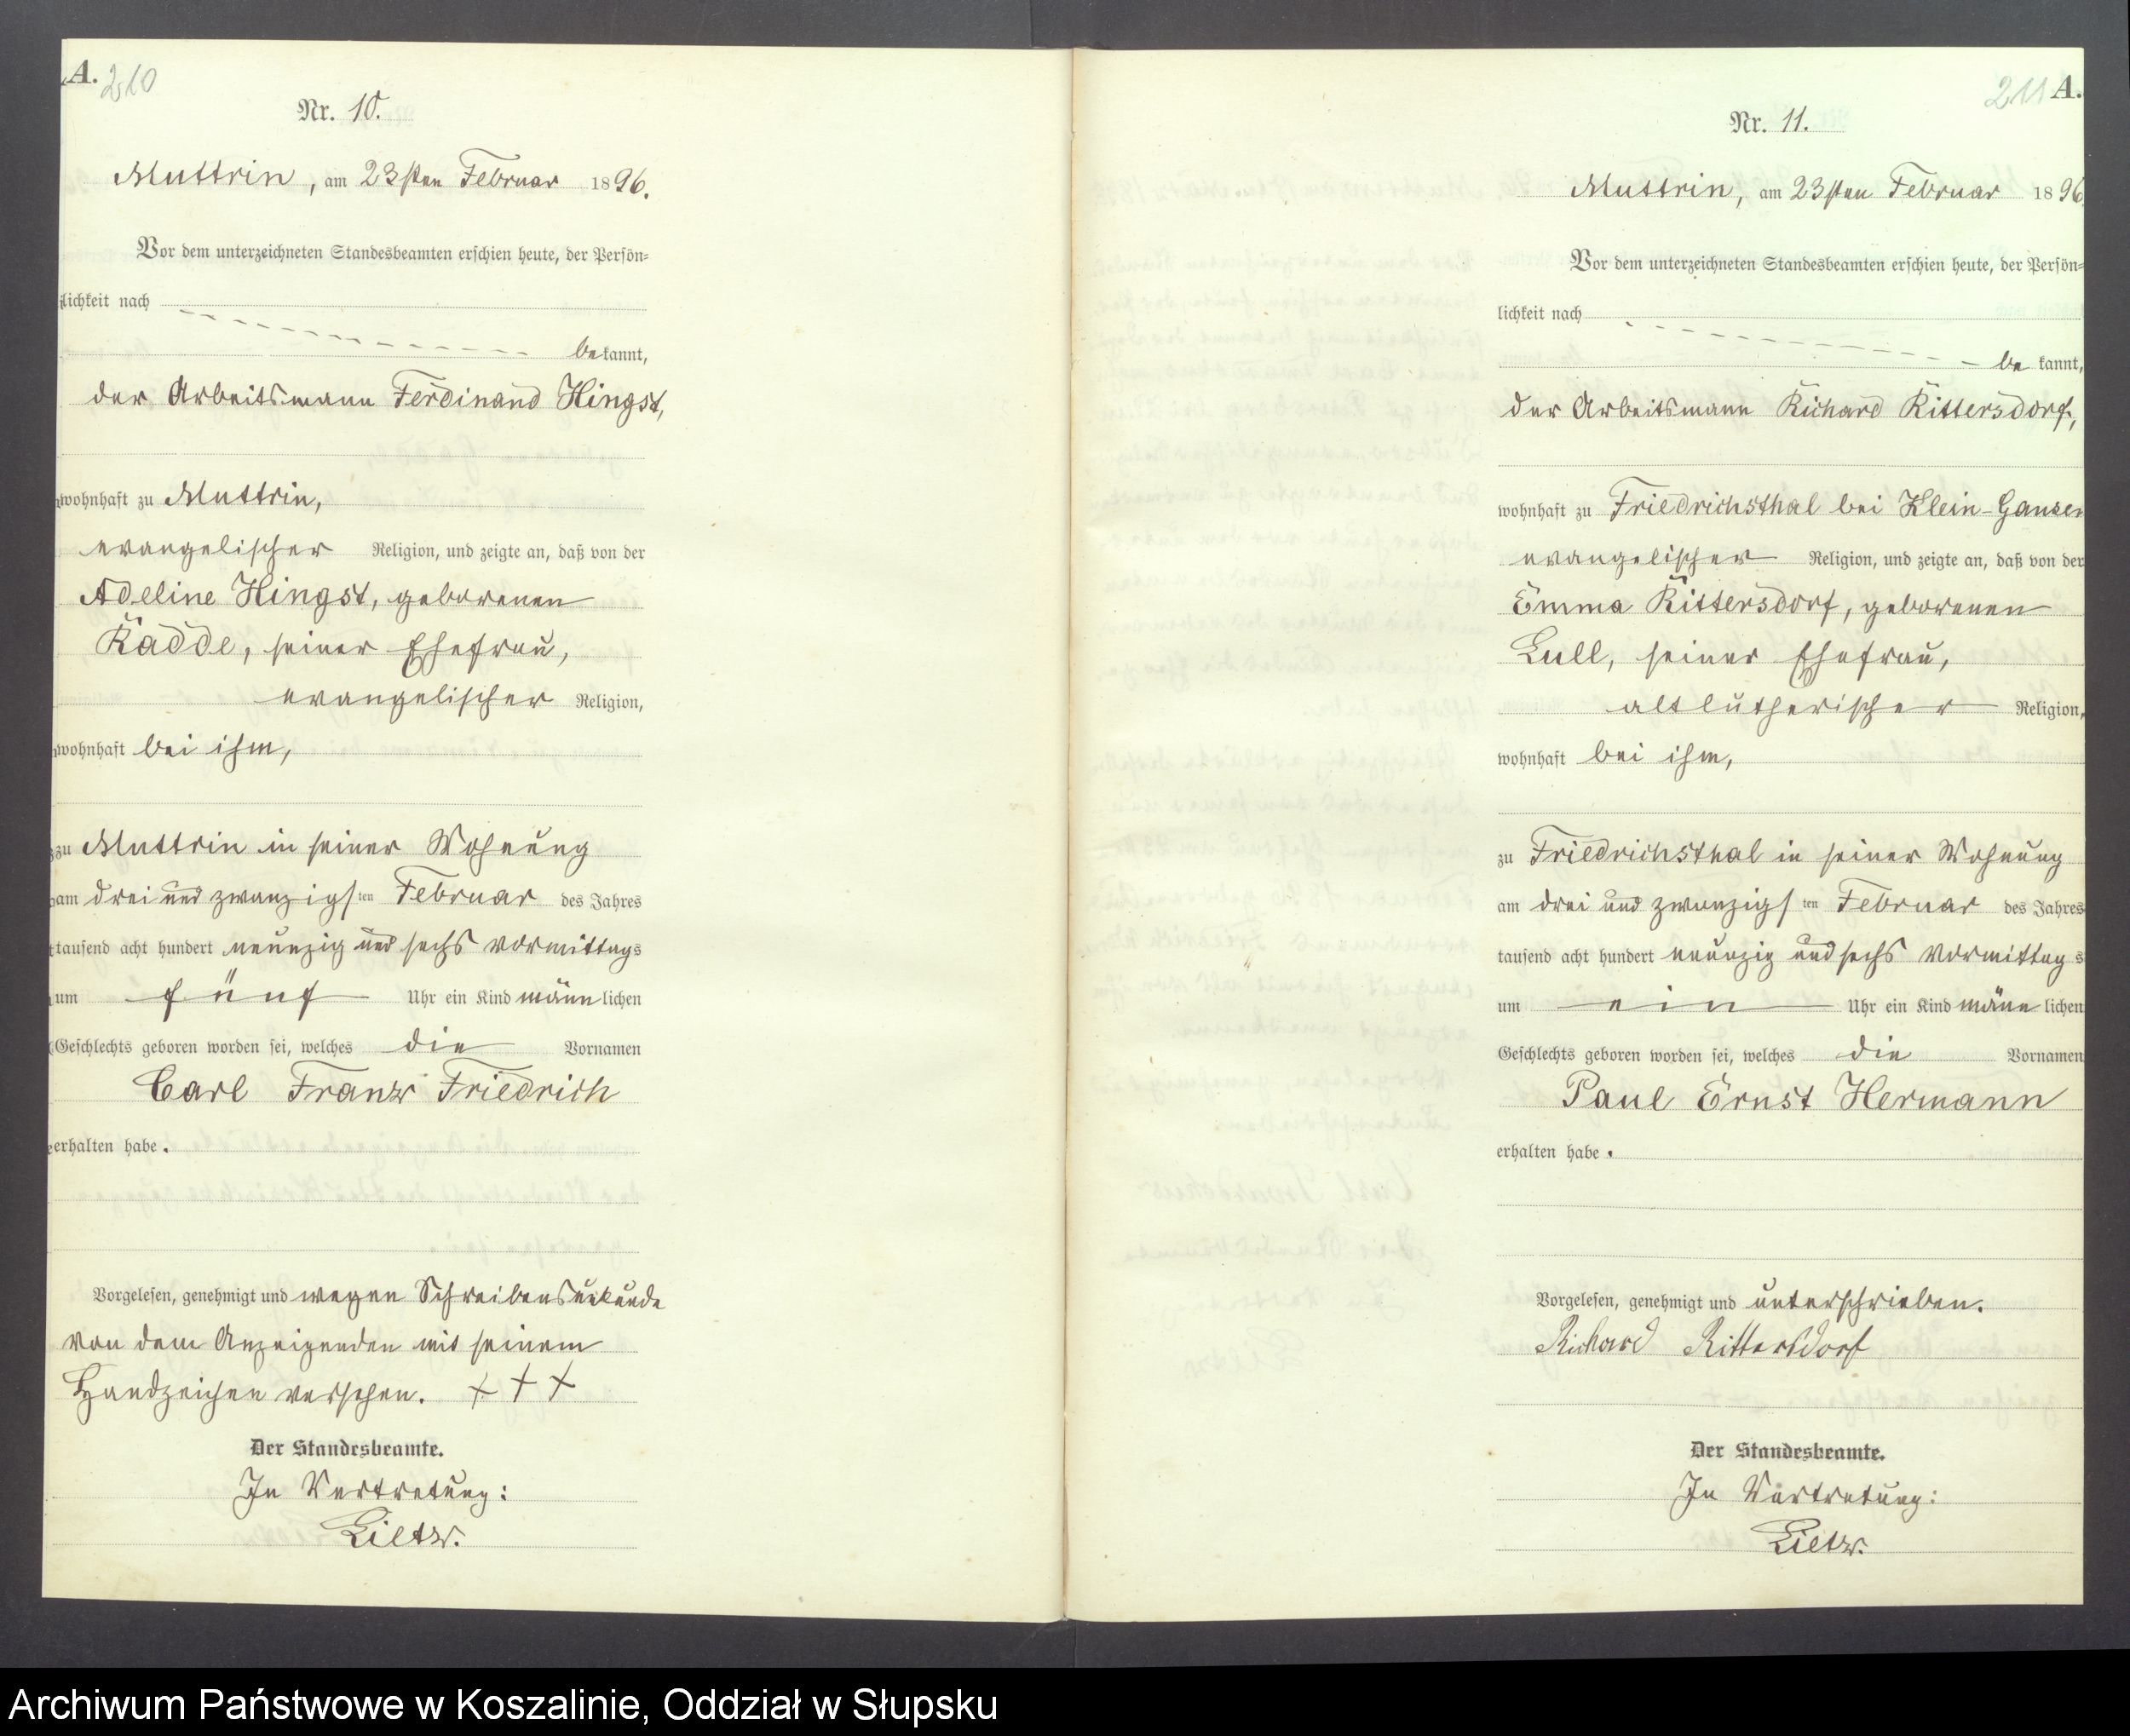 A. 210
Nr. 10.
Muttrin, am 23sten Februar 1896.
Vor dem unterzeichneten Standesbeamten erschien heute, der Persön-
lichkeit nach
bekannt,
der Arbeitsmann Ferdinand Hingst,
wohnhaft zu Muttrin,
evangelischer Religion, und zeigte an, daß von der
Adeline Hingst, geborenen
Radde, seiner Ehefrau,
evangelischer Religion,
wohnhaft bei ihm,
zu Muttrin in seiner Wohnung
am drei und zwanzigsten Februar des Jahres
tausend acht hundert neunzig und sechs vormittags
um fünf Uhr ein Kind männlichen
Geschlechts geboren worden sei, welches die Vornamen
Carl Franz Friedrich
erhalten habe.
Vorgelesen, genehmigt und wegen Schreibensunkunde
von dem Anzeigenden mit seinem
Handzeichen versehen. + + +
Der Standesbeamte.
In Vertretung:
Lietz.
211 A.
Nr. 11.
Muttrin, am 23sten Februar 1896
Vor dem unterzeichneten Standesbeamten erschien heute, der Persön-
lichkeit nach
bekannt,
der Arbeitsmann Richard Rittersdorf,
wohnhaft zu Friedrichsthal bei Klein-Gansen
evangelischer Religion, und zeigte an, daß von der
Emma Rittersdorf, geborenen
Lull, seiner Ehefrau,
altlutherischer Religion,
wohnhaft bei ihm,
zu Friedrichsthal in seiner Wohnung
am drei und zwanzigsten Februar des Jahres
tausend acht hundert neunzig und sechs vormittags
um ein Uhr ein Kind männlichen
Geschlechts geboren worden sei, welches die Vornamen
Paul Ernst Hermann
erhalten habe.
Vorgelesen, genehmigt und unterschrieben.
Richard Rittersdorf
Der Standesbeamte.
In Vertretung:
Lietz.
Archiwum Państwowe w Koszalinie, Oddział w Słupsku